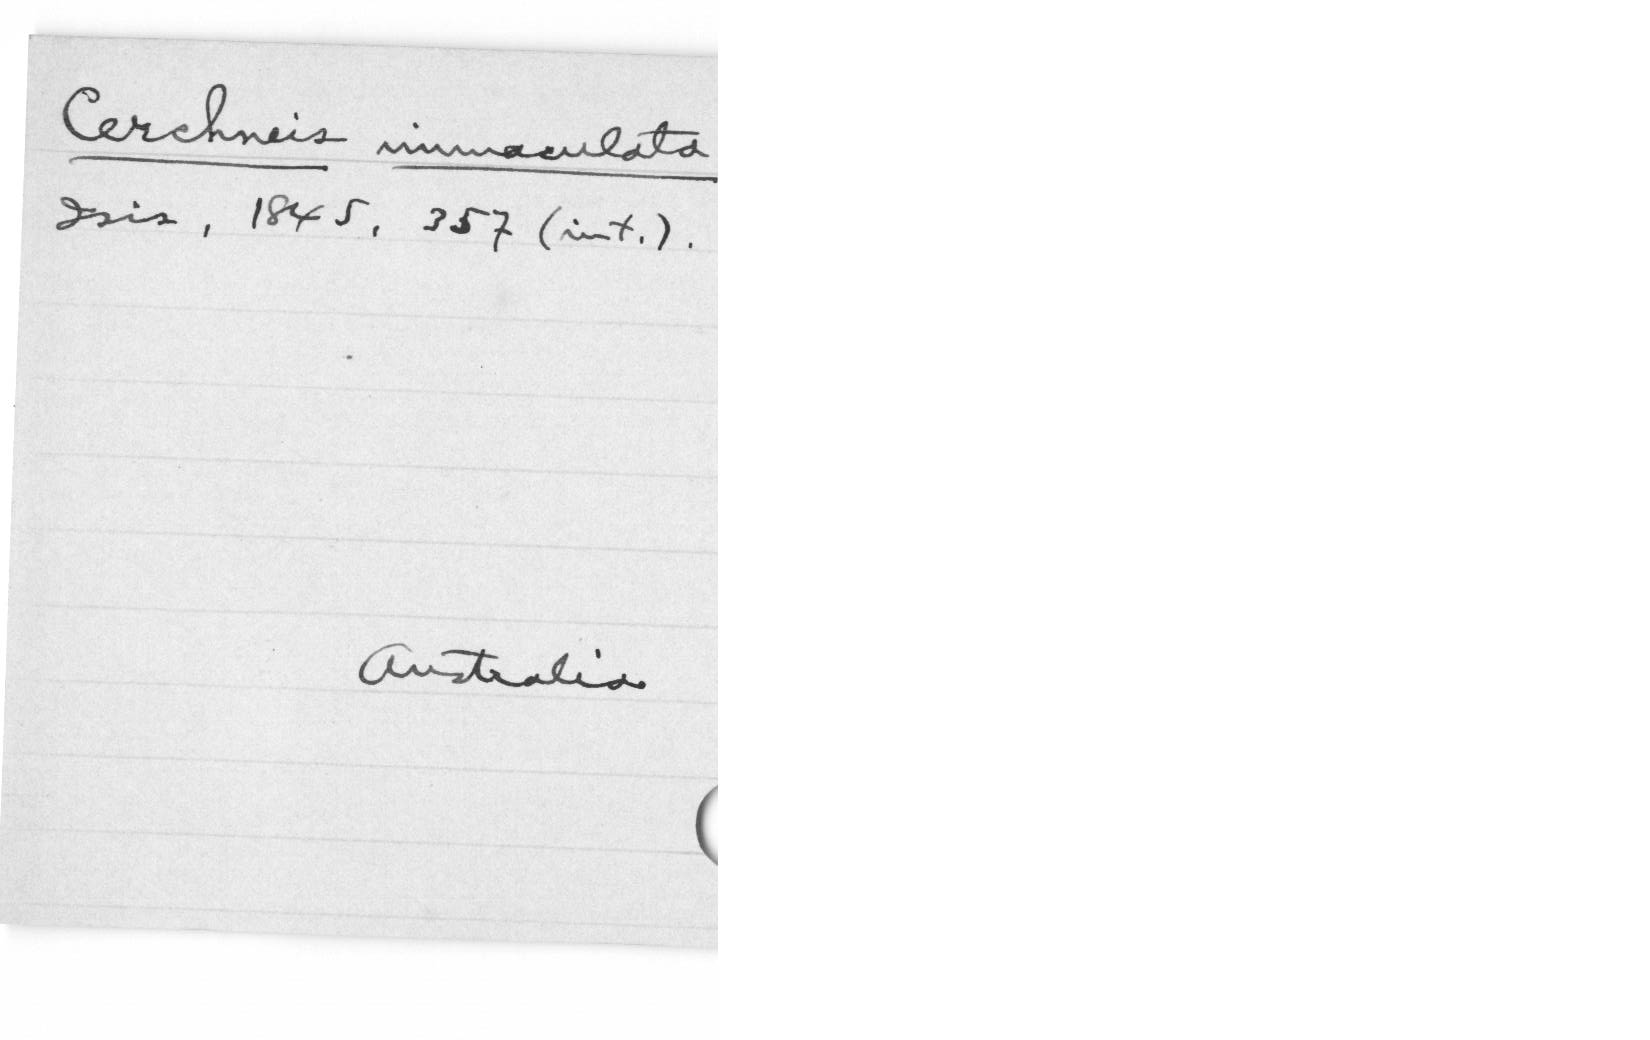 Cerchneis immaculata
Isis, 1845, 357 (int.).
Australia